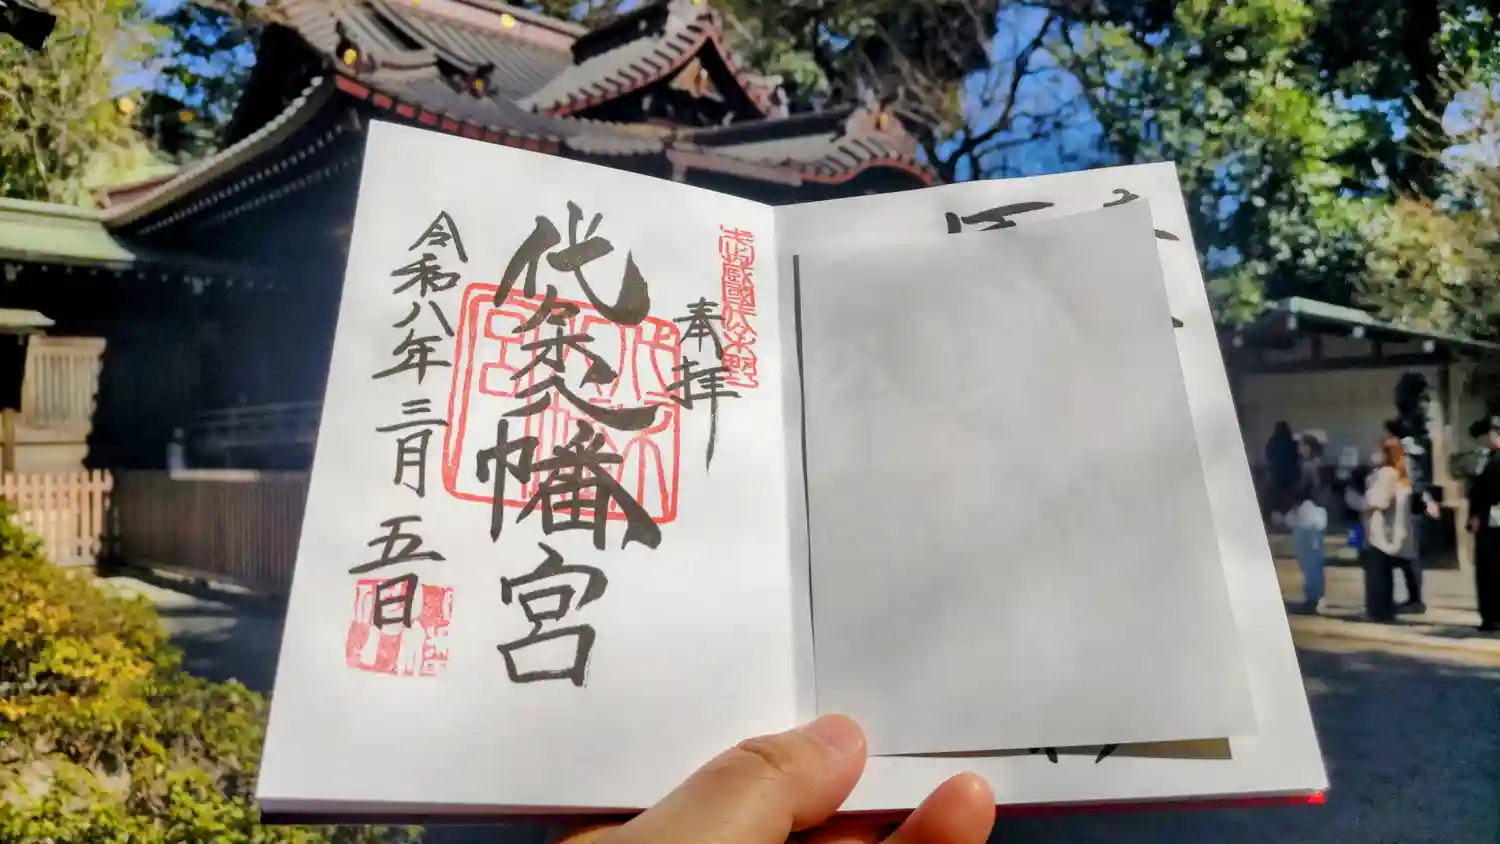 武蔵國代々木野
奉拝
代々木八幡宮
令和八年三月五日